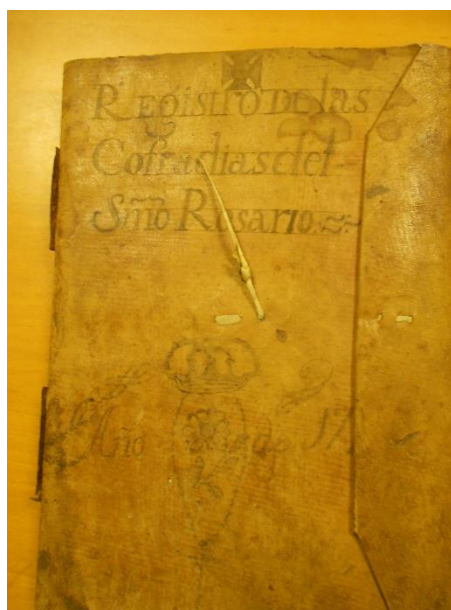 Registro de las
Cofradias del
Smõ Rosario
Año 17